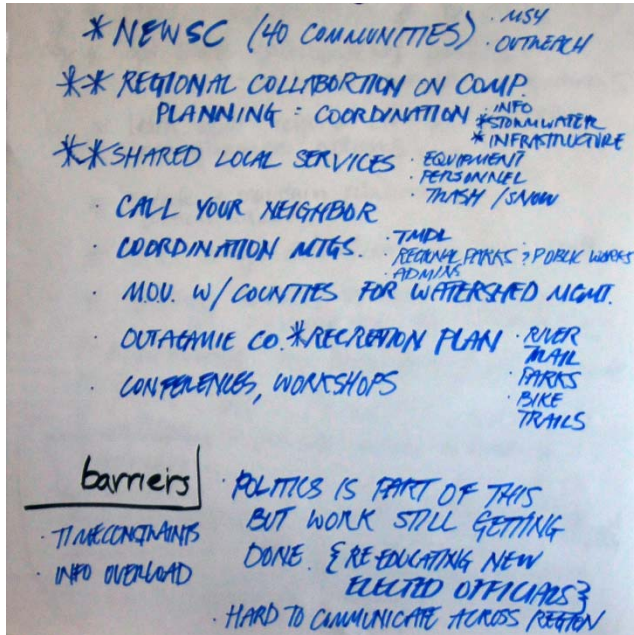 * NEWSC (40 COMMUNITIES) · MS4
· OUTREACH
** REGIONAL COLLABORTION ON COMP.
PLANNING = COORDINATION · INFO
* STORMWATER
* INFRASTRUCTURE
** SHARED LOCAL SERVICES · EQUIPMENT
· PERSONNEL
· TRASH / SNOW
· CALL YOUR NEIGHBOR
· COORDINATION MTGS. · TMDL
· REGIONAL PARKS ? PUBLIC WORKS
· ADMINS
· M.O.U. W/ COUNTIES FOR WATERSHED MGMT.
· OUTAGAMIE CO. * RECREATION PLAN · RIVER
TRAIL
· CONFERENCES, WORKSHOPS · PARKS
· BIKE
TRAILS
barriers
· TIME CONSTRAINTS
· INFO OVERLOAD
· POLITICS IS PART OF THIS
BUT WORK STILL GETTING
DONE. {RE-EDUCATING NEW
ELECTED OFFICIALS}
· HARD TO COMMUNICATE ACROSS REGION